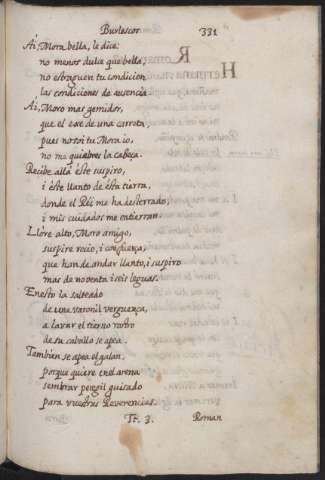 Burlescos 331
Ai, Mora bella, le dice:
no menos dulce que bella,
no estraguen tu condicion
las condiciones de ausencia.
Ai, Moro mas gemidor,
que el exe de una carreta,
pues no soi tu Mora io,
no me quiebres la cabeça.
Recibe allà este suspiro,
i este llanto de esta tierra,
donde el Rei me ha desterrado,
i mis cuidados me entierran.
Llore alto, Moro amigo,
suspire recio, i con fuerça,
que han de andar llanto, i suspiro
mas de noventa i seis leguas.
En esto ia salteado
de una varonil verguença,
a lavar el tierno rostro
de su caballo se apea.
Tambien se apea el galan,
porque quiere en el arena
sembrar peregil guisado
para vuestras Reverencias.
Tt. 3. Roman